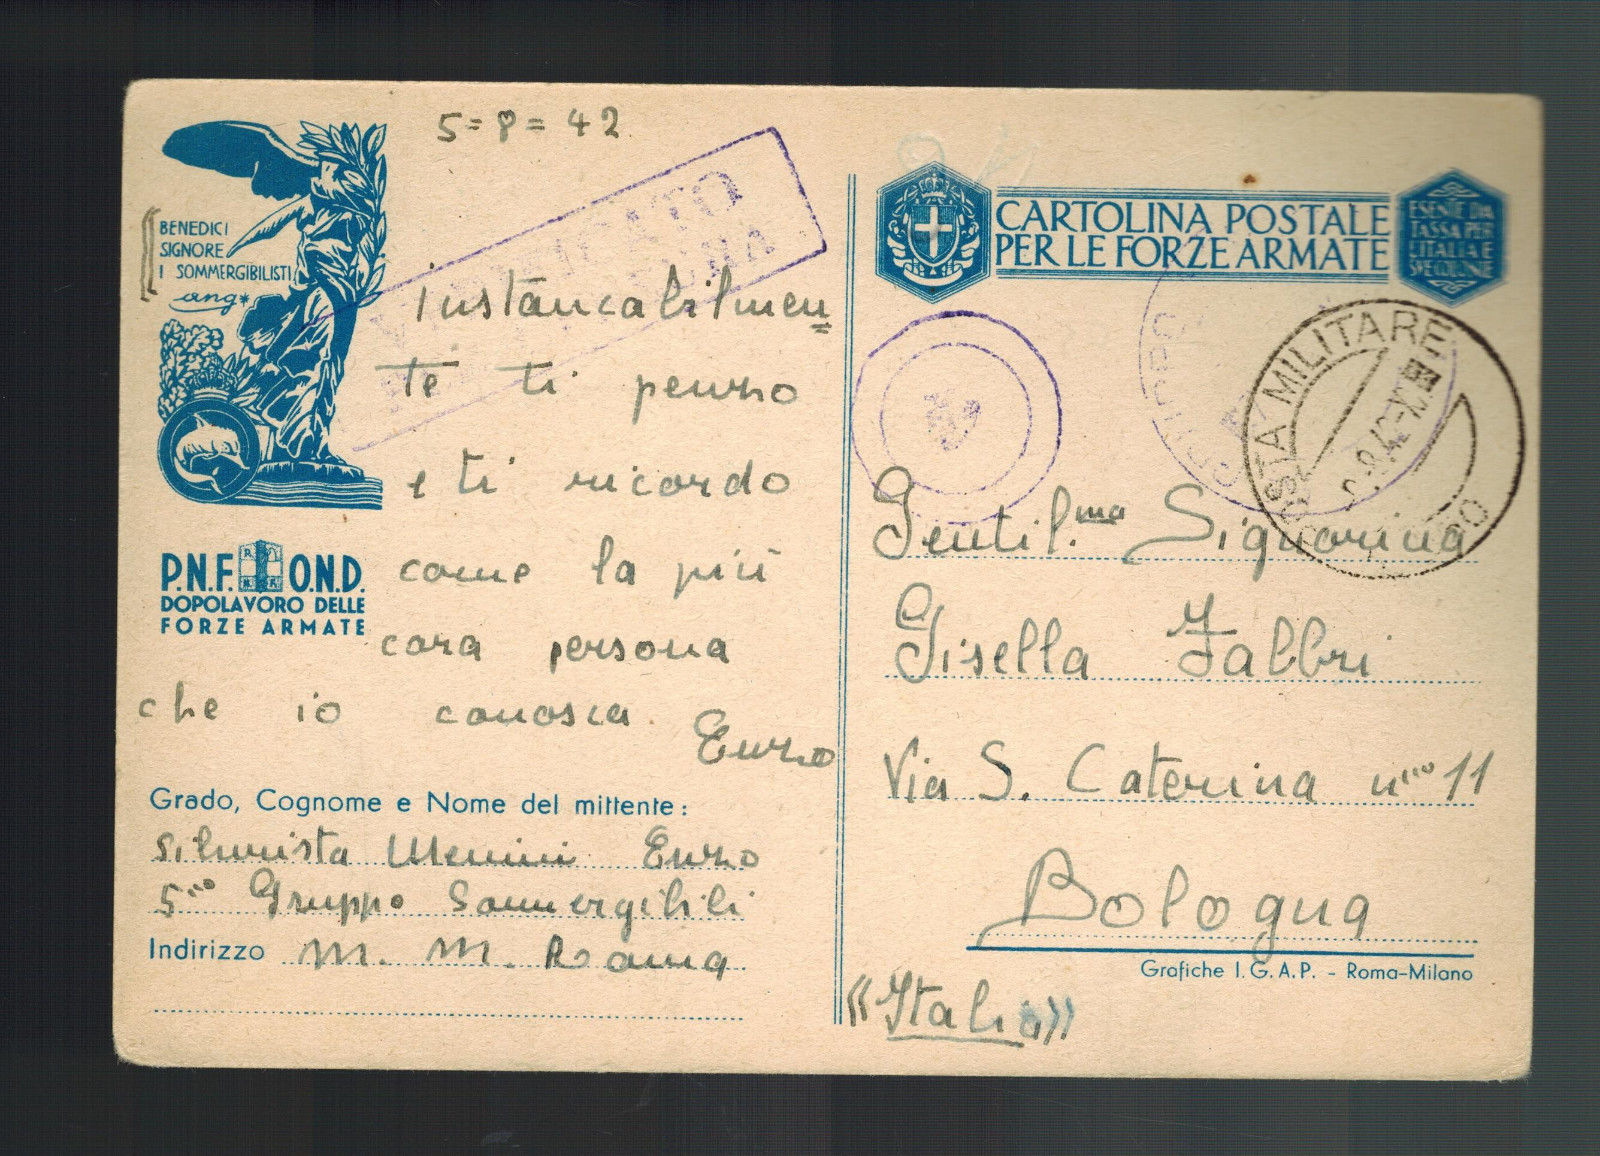 5=8=42
BENEDICI
SIGNORE
I SOMMERGIBILISTI
ang*
instancabilmen=
te ti penso
e ti ricordo
come la più
cara persona
che io conosca
Enzo
P.N.F. O.N.D.
DOPOLAVORO DELLE
FORZE ARMATE
Grado, Cognome e Nome del mittente:
Silurista Enzo
5º Gruppo Sommergibili
Indirizzo M. M. Roma
CARTOLINA POSTALE
PER LE FORZE ARMATE
ESENTE DA
TASSA PER
L'ITALIA E
SUE COLONIE
POSTA MILITARE
Gentil.ma Signorina
Gisella Fabbri
Via S. Caterina nº 11
Bologna
Grafiche I.G.A.P. - Roma-Milano
«Italia»